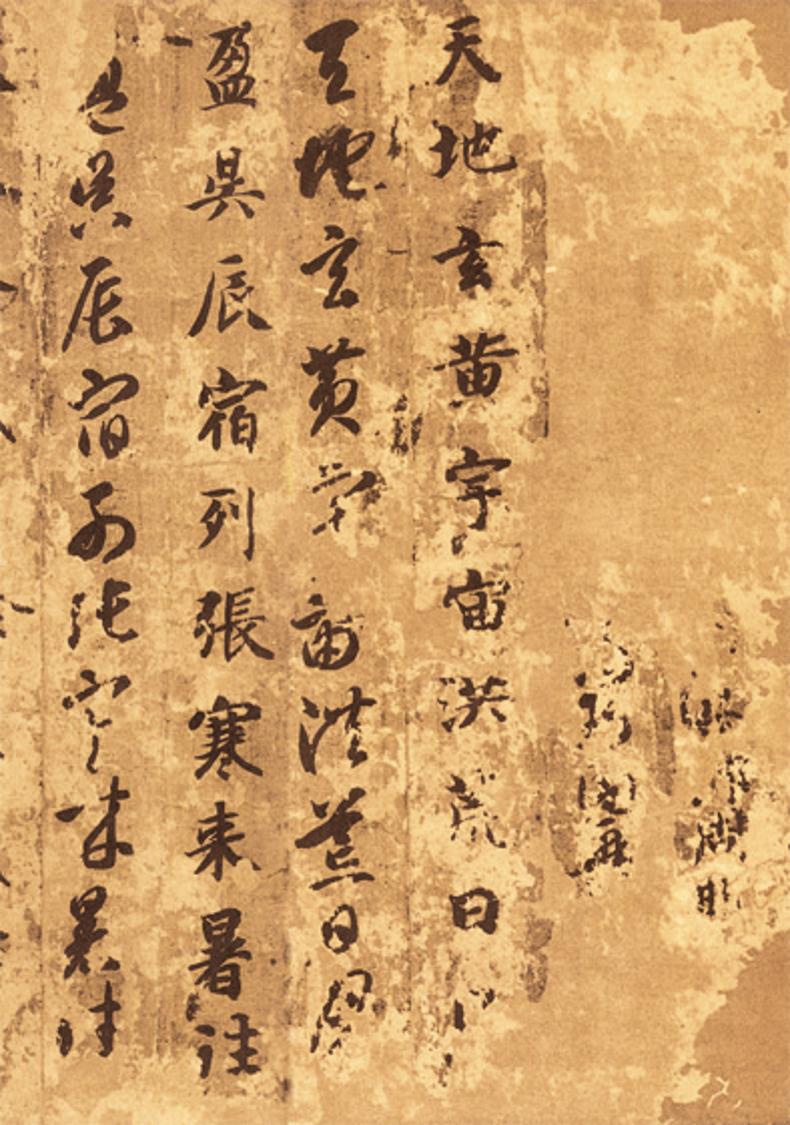 天地玄黄宇宙洪荒日
天地玄黄宇宙洪荒日月
盈昃辰宿列張寒来暑往
盈昃辰宿列張寒来暑往